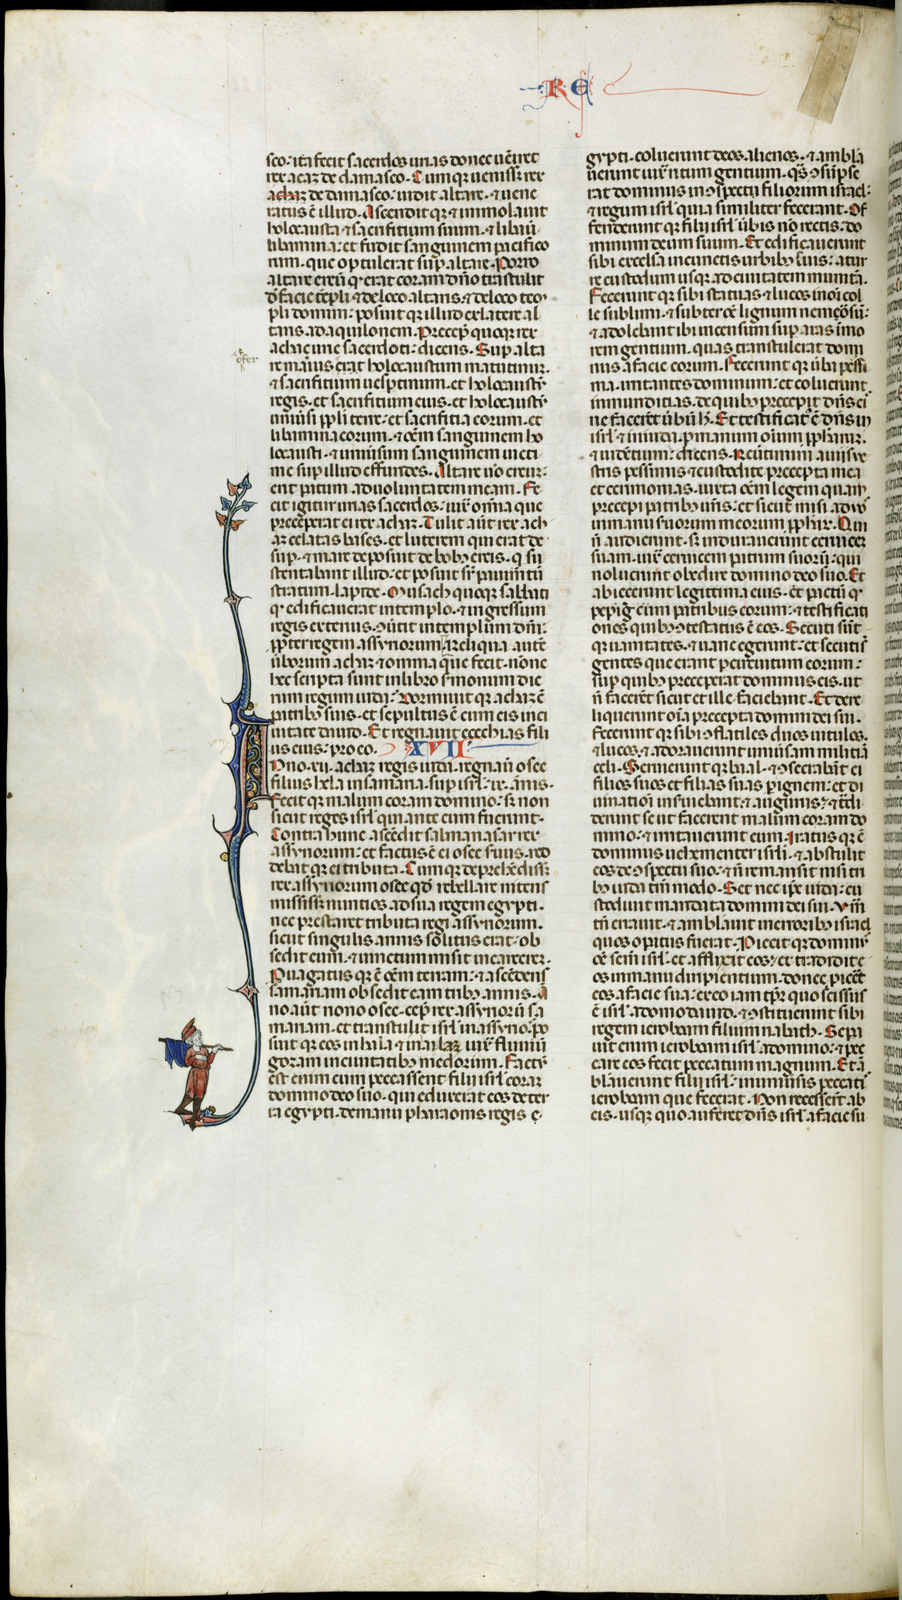 RE
sco: ita fecit sacerdos urias donec ueniret
rex acaz de damasco. Cumque uenisset rex
achaz de damasco: uidit altare. et uene
ratus est illud. Ascenditque et immolauit
holocausta et sacrificium suum. et libauit
libamina: et fudit sanguinem pacifico
rum. que optulerat super altare. Porro
altare ereum quod erat coram domino transtulit
de facie templi et de loco altaris. et de loco tem
pli domini: posuitque illud ex latere al
taris ad aquilonem. Precepit quoque rex
achaz urie sacerdoti: dicens. Sup alta
re maius
holocaustum matutinum.
et sacrificium uespertinum. et holocaustum
regis. et sacrificium eius. et holocaustum
uniuersi populi terre: et sacrificia eorum. et
libamina eorum. et omnem sanguinem ho
locausti. et uniuersum sanguinem uicti
me sup illud effundes. Altare uero ereum:
erit paratum ad uoluntatem meam. Fe
cit igitur urias sacerdos: iuxta omnia que
preceperat ei rex achaz. Tulit autem rex ach
az celatas bases. et luterem qui erat de
super. et mare deposuit de bobus ereis. qui su
stentabant illud: et posuit super pauimentum
stratum lapide. Musach quoque sabbati
quod edificauerat in templo. et ingressum
regis exterius conuertit in templum domini:
propter regem assyriorum. Reliqua autem
uerborum achaz et omnia que fecit. nonne
hec scripta sunt in libro sermonum die
rum regum iuda? Dormiuitque achaz cum
patribus suis. et sepultus est cum eis in ci
uitate dauid. Et regnauit ezechias fili
us eius. pro eo. XVII
Anno. xij. achaz regis iuda. regnauit osee
filius hela in samaria. sup isrl. ix. annis.
Fecitque malum coram domino: sed non
sicut reges isrl qui ante eum fuerant.
Contra hunc ascendit salmanasar rex
assyriorum: et factus est ei osee seruus. red
debatque ei tributa. Cumque deprehendisset
rex assyriorum osee quod rebellare nitens
misisset nuntios ad sua regem egypti.
nec prestaret tributa regi assyriorum.
sicut singulis annis solitus erat: ob
sedit eum. et uinctum misit in carcerem.
Peruagatusque est omnem terram: et ascendens
samariam obsedit eam tribus annis. A
no autem nono osee. cepit rex assyriorum sa
mariam. et transtulit isrl in assyrios. po
suitque eos in hala et in ...
iuxta fluuium
gozam in ciuitatibus medorum. Factum
est enim cum peccassent filij isrl coram
domino deo suo. qui eduxerat eos de ter
ra egypti. de manu pharaonis regis e
gypti. coluerunt deos alienos. et ambula
uerunt iuxta ritum gentium. quas consumpse
rat dominus in conspectu filiorum israel:
et regum isrl quia similiter fecerant. Of
fenderuntque filij isrl uerbis non rectis. do
minum deum suum. Et edificauerunt
sibi excelsa in cunctis urbibus suis: a tur
re custodum usque ad ciuitatem munitam.
Feceruntque sibi statuas et lucos in omni col
le sublimi. et subter omne lignum nemorosum:
et adolebant ibi incensum sup aras in mo
rem gentium. quas transtulerat domi
nus a facie eorum. Feceruntque uerba pessi
ma. irritantes dominum: et coluerunt
inmunditias. de quibus precepit dominus eis
ne facerent uerbum hoc. Et testificatus est dominus in
isrl et in iuda. per manum omnium prophetarum.
et uidentium: dicens. Reuertimini a uijs ue
stris pessimis et custodite precepta mea
et cerimonias. iuxta omnem legem quam
precepi patribus uestris: et sicut misi ad uos
in manu seruorum meorum prophetarum. Qui
non audierunt. sed indurauerunt ceruicem
suam. iuxta ceruicem patrum suorum: qui
noluerunt obedire domino deo suo. Et
abiecerunt legittima eius. et pactum quod
pepigit cum patribus eorum: et testificati
ones quibus contestatus est eos. Secutique sunt
uanitates. et uane egerunt: et secuti sunt
gentes que erant per circuitum eorum:
sup quibus preceperat dominus eis. ut
non facerent sicut et ille faciebant. Et dere
liquerunt omnia precepta domini dei sui.
Feceruntque sibi conflatiles duos uitulos.
et lucos. et adorauerunt uniuersam militiam
celi. Serueruntque baal. et consecrabant ei
filios suos et filias suas per ignem: et di
uinationibus inseruiebant. et augurijs: et tradi
derunt se ut facerent malum coram do
mino: et irritauerunt eum. Iratusque est
dominus uehementer isrli. et abstulit
eos de conspectu suo. et non remansit nisi tri
bus iuda tantum modo. Set nec ipse iuda. cu
stodiuit mandata domini dei sui. Verum
tamen errauit. et ambulauit in erroribus israel
quos operatus fuerat. Proiecitque dominus
omne semen isrl. et afflixit eos: et tradidit e
os in manu diripientium. donec proiceret
eos a facie sua: ex eo iam tempore quo scissus
est isrl. a domo dauid. et constituerunt sibi
regem ieroboam filium nabath. Separa
uit enim ieroboam isrl a domino: et pec
care eos fecit peccatum magnum. Et am
blauerunt filij isrl. in uniuersis peccatis
ieroboam que fecerat. Non recesserunt ab
eis. usque quo auferret dominus isrl a facie su